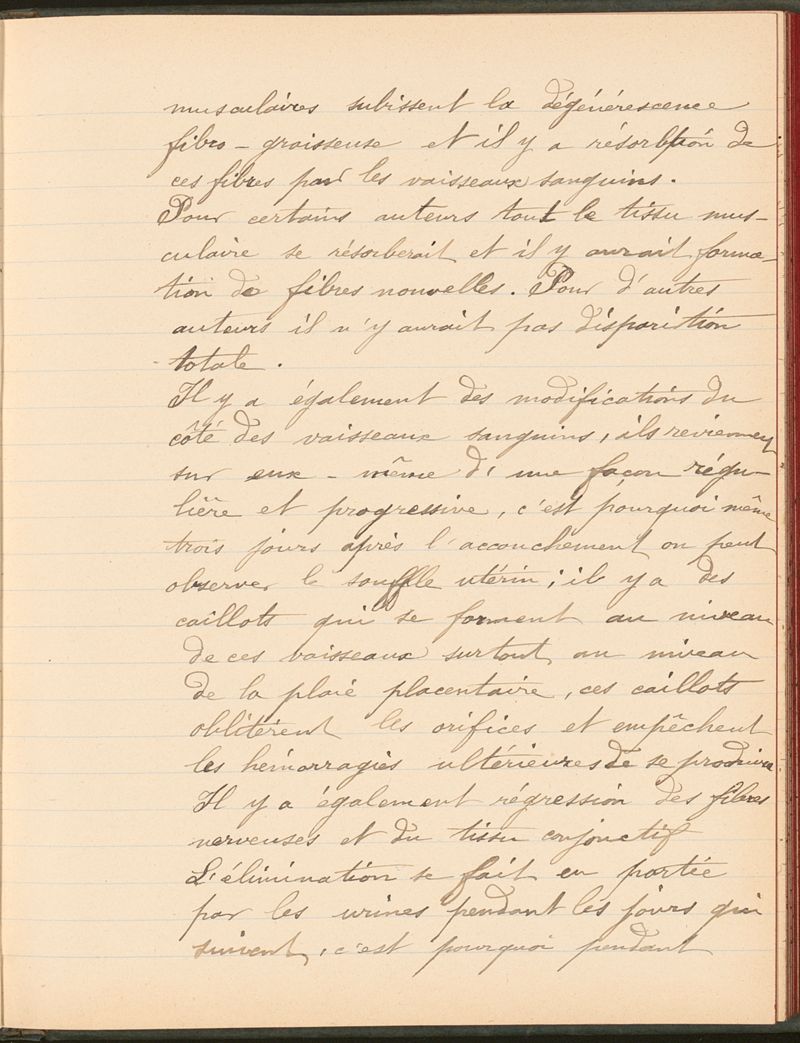 musculaires subissent la dégénérescence
fibro-graisseuse et il y a résorbtion de
ces fibres par les vaisseaux sanguins.
Pour certains auteurs tout le tissu mus-
culaire se résorberait et il y aurait forma-
tion de fibres nouvelles. Pour d'autres
auteurs il n'y aurait pas disparition
totale.
Il y a également des modifications du
côté des vaisseaux sanguins, ils reviennent
sur eux-même d'une façon régu-
lière et progressive, c'est pourquoi même
trois jours après l'accouchement on peut
observer le souffle utérin; il y a des
caillots qui se forment au niveau
de ces vaisseaux surtout au niveau
de la plaie placentaire, ces caillots
oblitèrent les orifices et empêchent
les hémorragies ultérieures de se produire.
Il y a également régression des fibres
nerveuses et du tissu conjonctif
L'élimination se fait en partie
par les urines pendant les jours qui
suivent, c'est pourquoi pendant